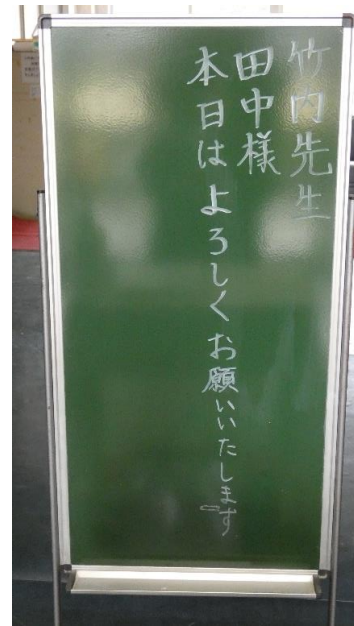 竹内先生
田中様
本日はよろしくお願いいたします